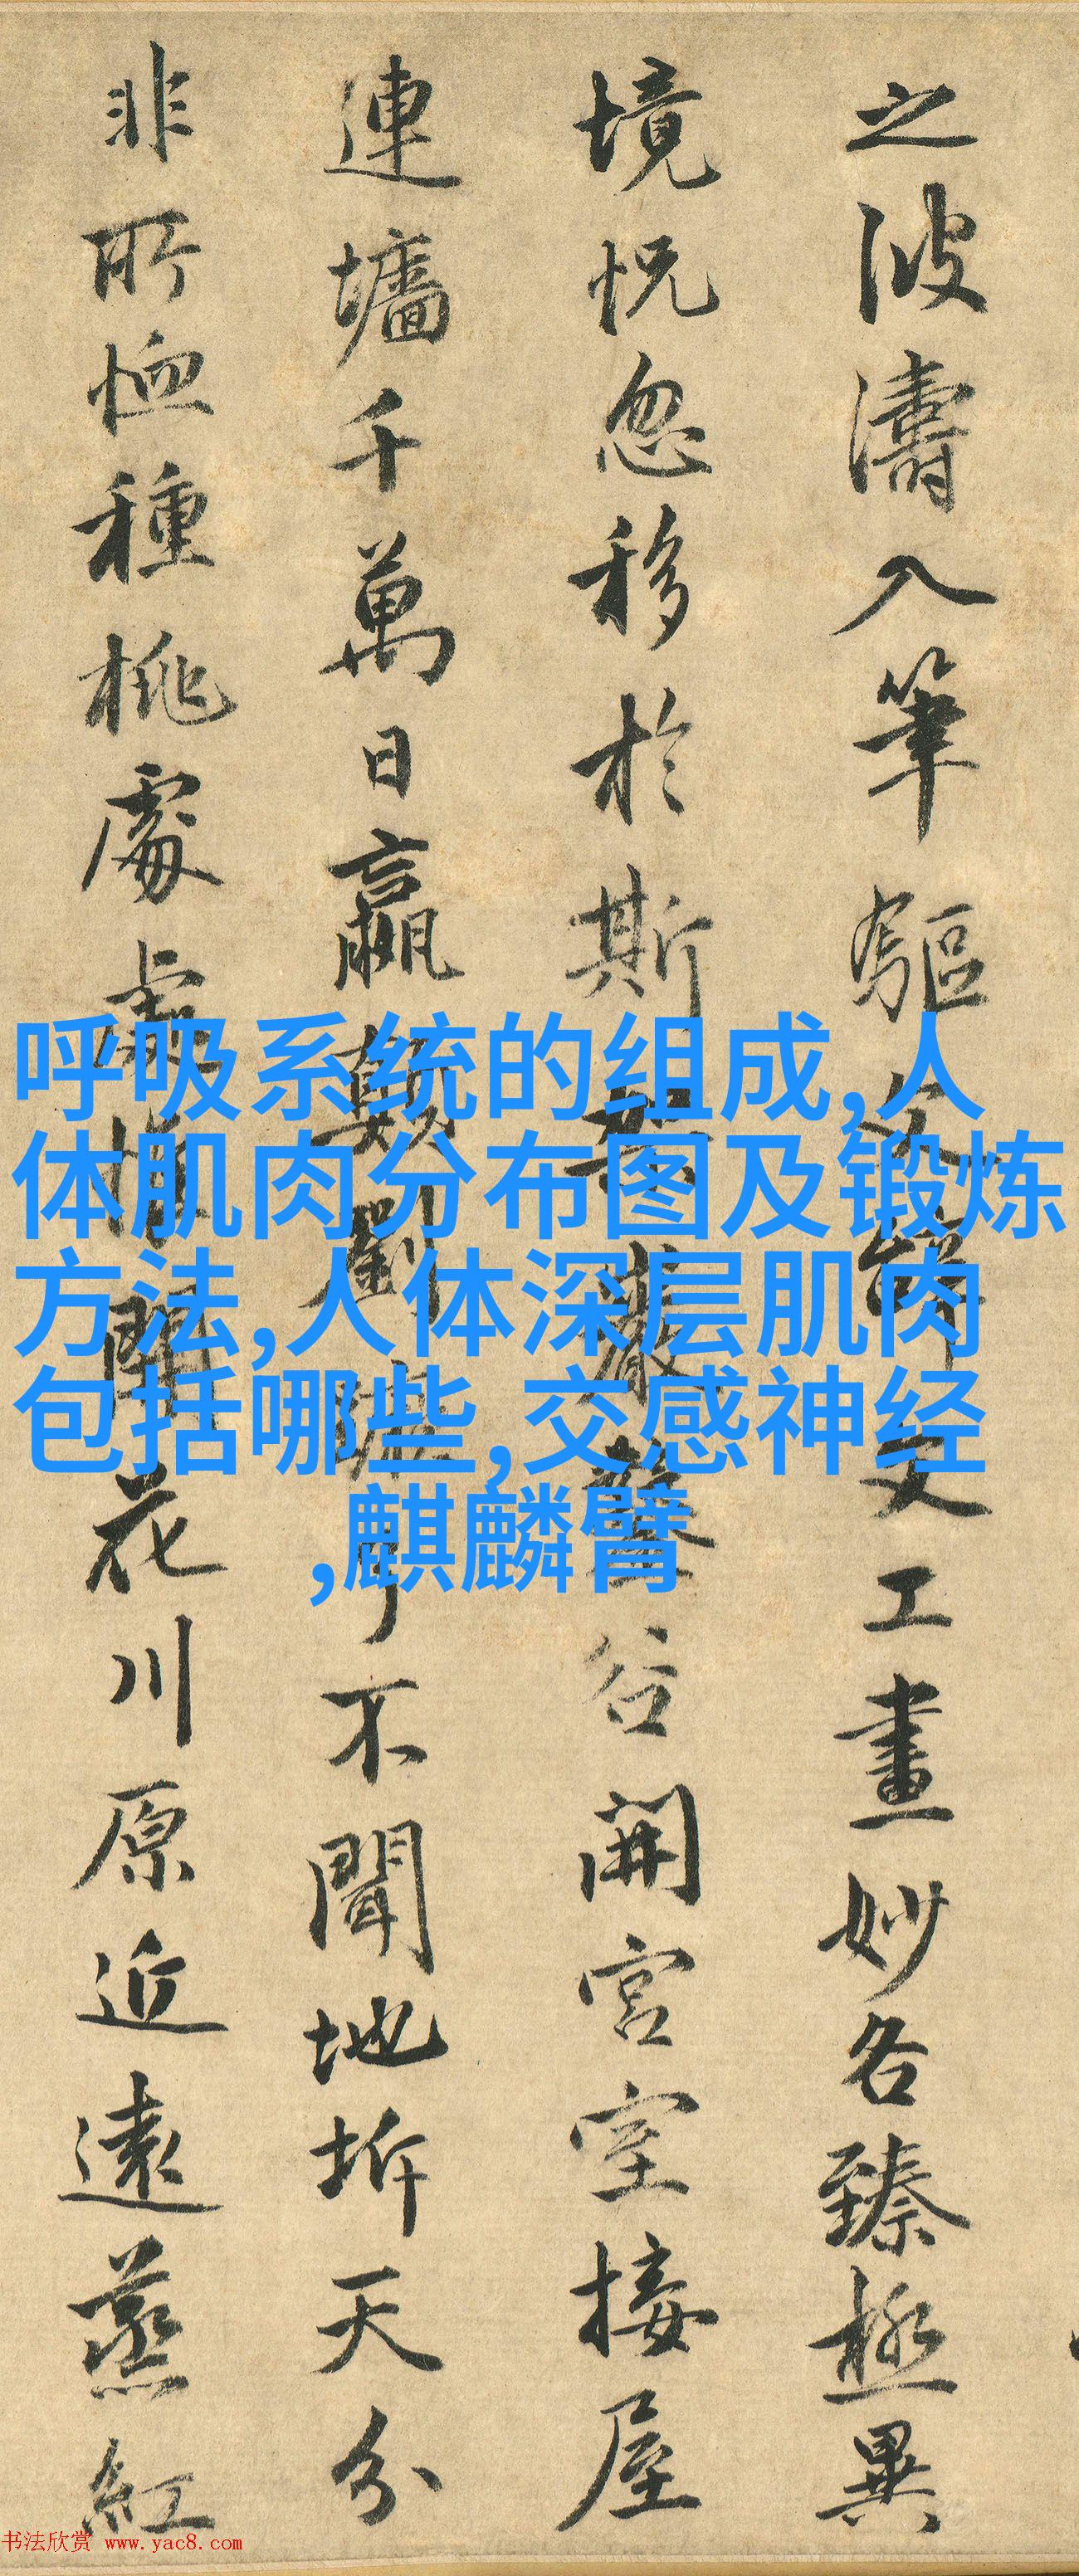 之波濤入筆驅文辭文工畫妙各臻極異
境恍忽移於斯架巖鑿谷開宮室接屋
連墻千萬日嬴顛劉蹶了不聞地坼天分
非所恤種桃處處惟開花川原近遠蒸紅
呼吸系统的组成,人
体肌肉分布图及锻炼
方法,人体深层肌肉
包括哪些,交感神经
,麒麟臂
书法欣赏 www.yac8.com